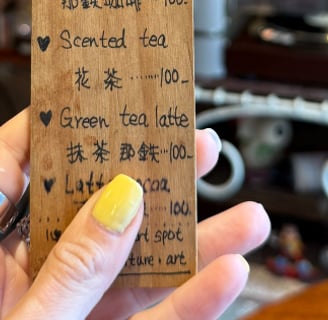 那鐵咖啡 100.
♥ Scented tea
花茶 ·······100.
♥ Green tea latte
抹茶那鐵···100.
♥ Latt coa
100.
rt spot
ture · art